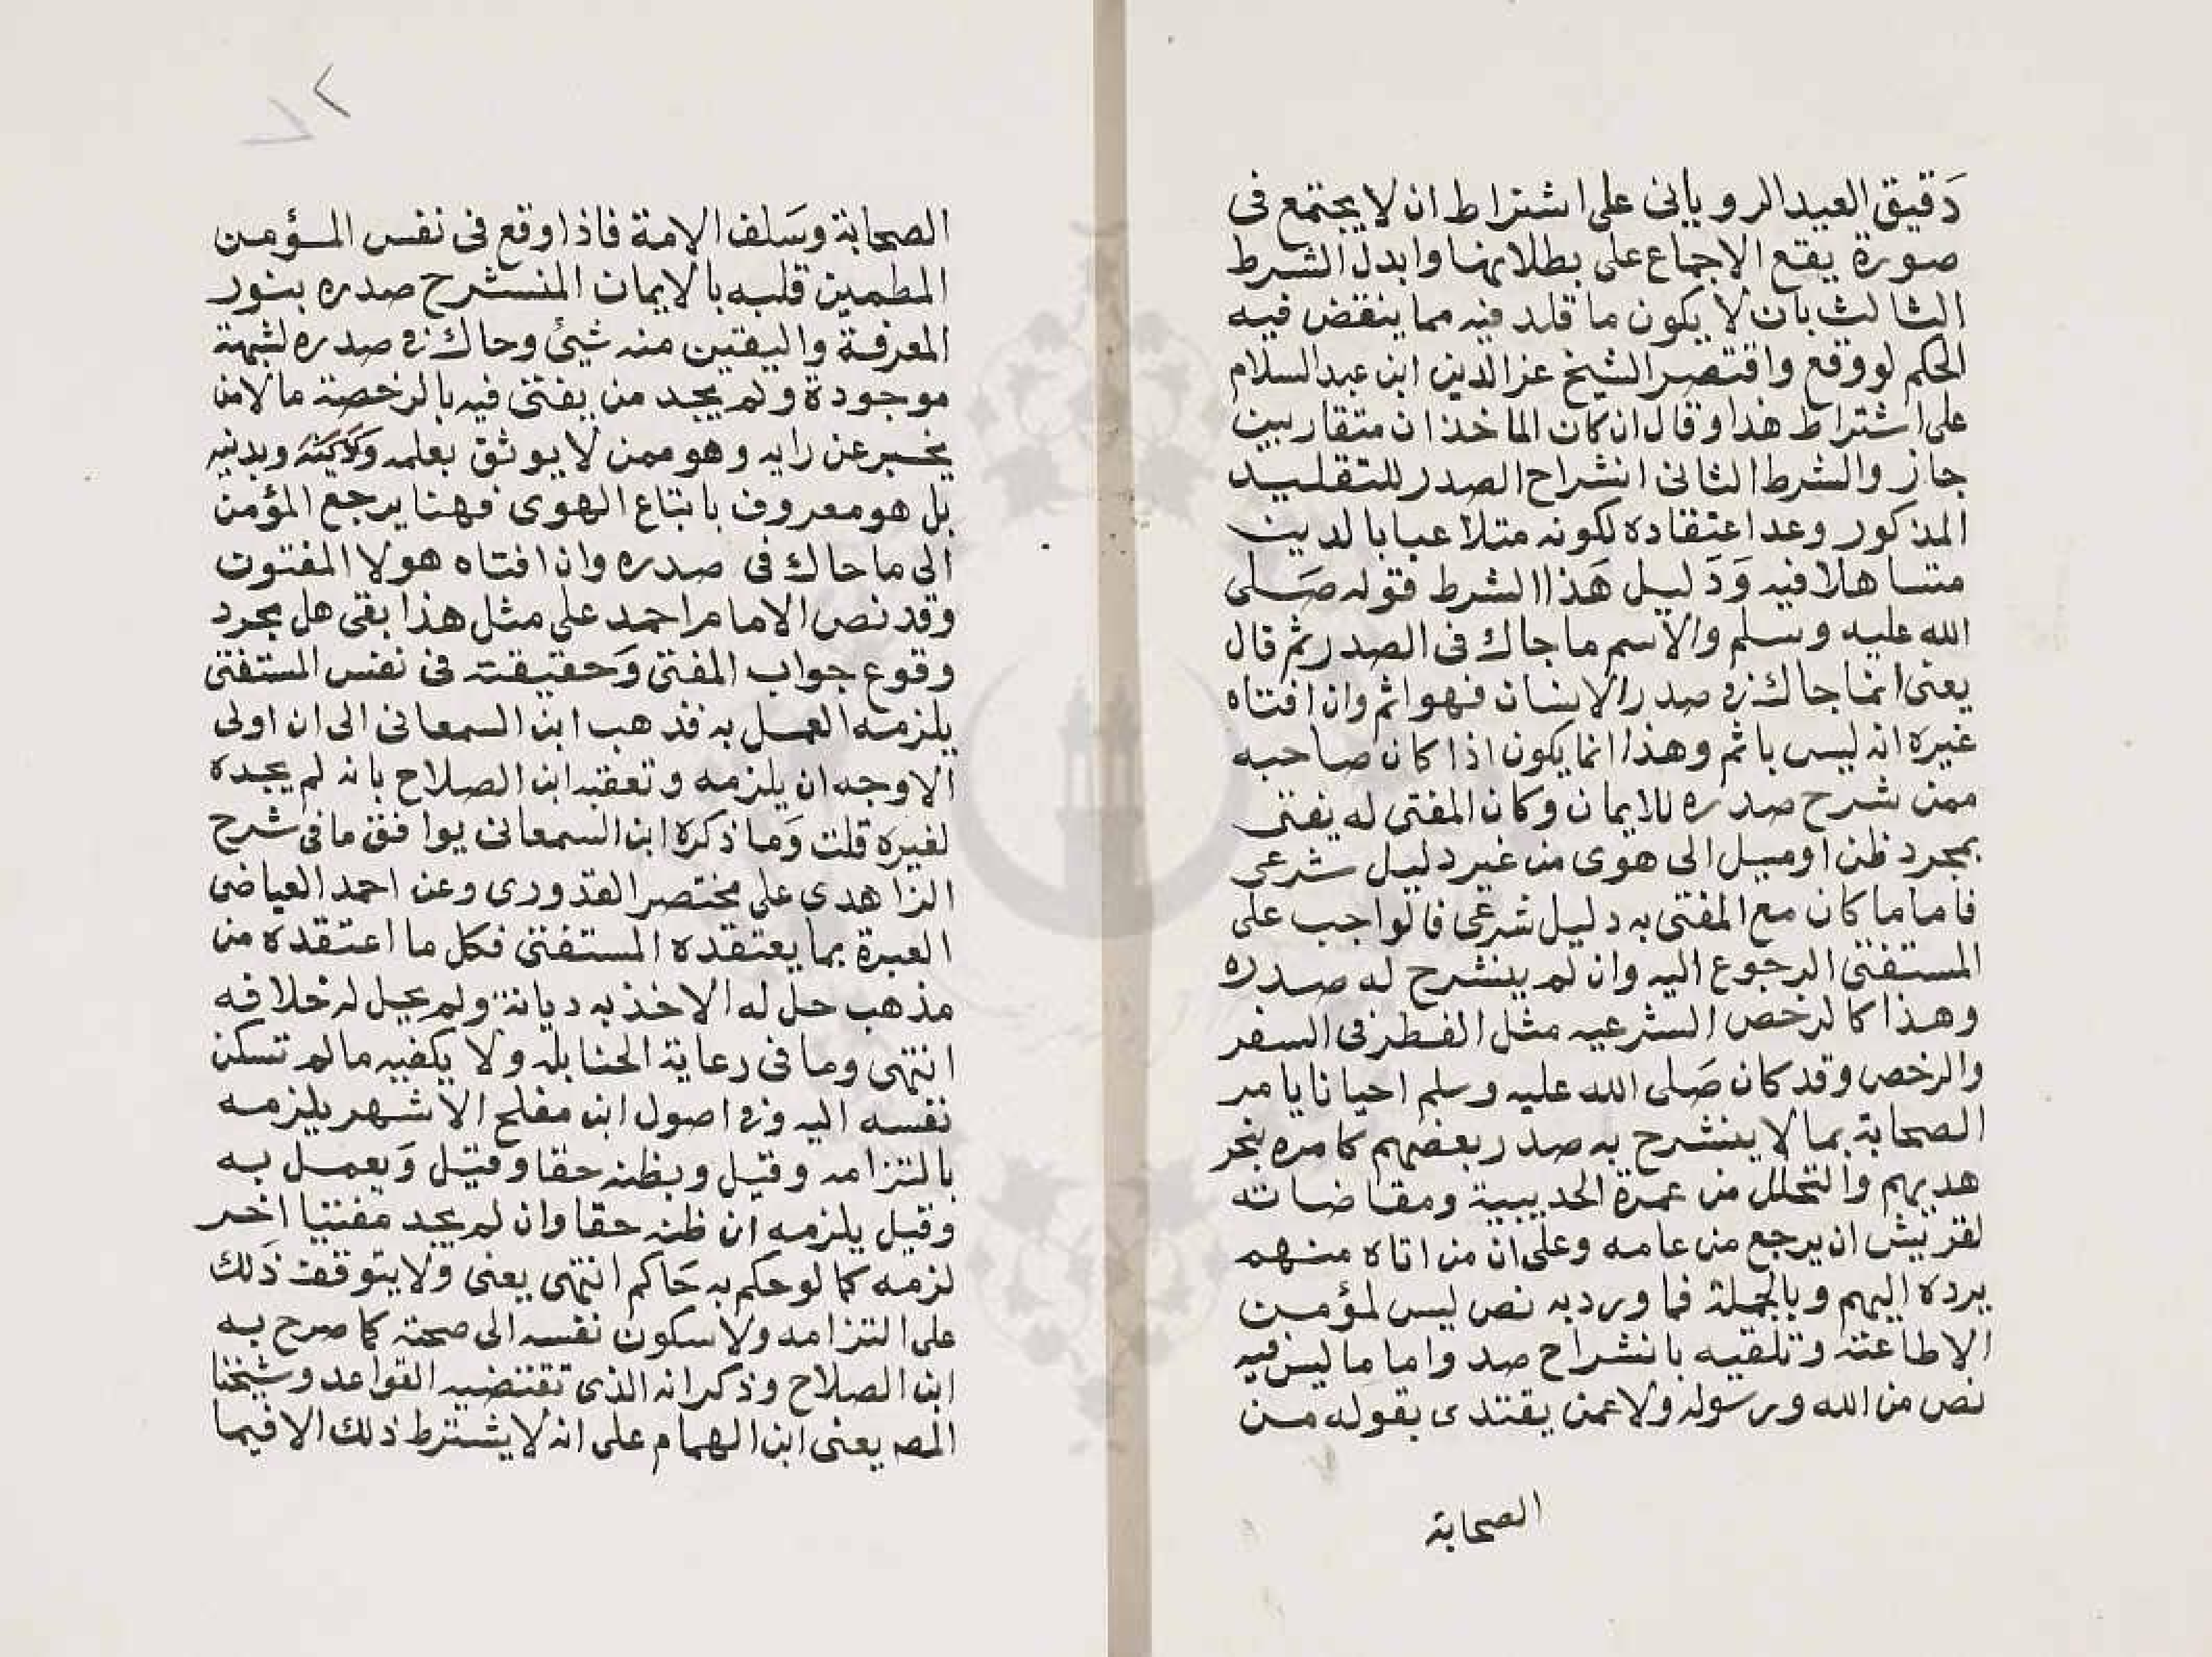 دقيق العيد الروياني على اشتراط ان لا يجتمع في
صورة يقع الاجماع على بطلانها وابدل الشرط
الثالث بان لا يكون ما قلد فيه مما ينقض فيه
الحكم لو وقع واقتصر الشيخ عز الدين ابن عبد السلام
على اشتراط هذا وقال ان كان الماخذان متقاربين
جاز والشرط الثاني انشراح الصدر للتقليد
المذكور وعدا عتقاده لكونه متلاعبا بالدين
متساهلا فيه وَدَليل هَذا الشرط قوله صَلى
الله عليه وسلم والاسم ما حاك في الصدر ثم قال
يعني انما حاك في صدر الانسان فهو اثم وان افتاه
غيره انه ليس باثم وهذا انما يكون اذا كان صاحبه
ممن شرح صدره للايمان وكان المفتي له يفتى
بمجرد ظن او ميل الى هوى من غير دليل شرعي
فاما ما كان مع المفتى به دليل شرعي فالواجب على
المستفتى الرجوع اليه وان لم ينشرح له صدره
وهذا كالرخص الشرعيه مثل الفطر في السفر
والرخص وقد كان صَلى الله عليه وسلم احيانا يامر
الصحابة بما لا ينشرح به صدر بعضهم كامره بنحر
هديهم والتحلل من عمرة الحديبية ومقاضاته
لقريش ان يرجع من عامه وعلى ان من اتاه منهم
يرده اليهم وبالجملة فما ورد به نص ليس لمؤمن
الاطاعته وتلقيه بانشراح صد واما ما ليس فيه
نص من الله ورسوله ولا عمن يقتدى بقوله من
الصحابة
الصحابة وسَلف الامة فاذا وقع في نفس المؤمن
المطمين قلبه بالايمان المنشرح صدره بنور
المعرفة واليقين منه شيئ وحاك في صدره لشبهة
موجودة ولم يجد من يفتى فيه بالرخصة ما لامن
يخبر عن رايه وهو ممن لا يوثق بعلمه وبدينه
بل هو معروف باتباع الهوى فهنا يرجع المؤمن
الى ما حاك في صدره وان افتاه هولا المفتون
وقد نص الامام احمد على مثل هذا بقى هل بمجرد
وقوع جواب المفتى وَحقيقته في نفس المستفتى
يلزمه العمل به فذهب ابن السمعاني الى ان اولى
الاوجه ان يلزمه وتعقبه ابن الصلاح بانه لم يجده
لغيره قلت وَما ذكره ابن السمعاني يوافق ما في شرح
الزاهدى على مختصر القدورى وعن احمد العياضى
العبرة بما يعتقده المستفتى فكل ما اعتقده من
مذهب حل له الاخذ به ديانة ولم يحل له خلافه
انتهى وما في رعاية الحنابله ولا يكفيه ما لم تسكن
نفسه اليه وفي اصول ابن مفلح الاشهر يلزمه
بالتزامه وقيل وبظنه حقا وقيل وَيعمل به
وقيل يلزمه ان ظنه حقا وان لم يجد مفتيا اخر
لزمه كما لو حكم به حَاكم انتهى يعنى ولا يتوقف ذلك
على التزامه ولا سكون نفسه الى صحته كما صرح به
ابن الصلاح وذكر انه الذى تقتضيه القواعد وشيخنا
المص يعنى ابن الهمام على انه لا يشترط ذلك الا فيما